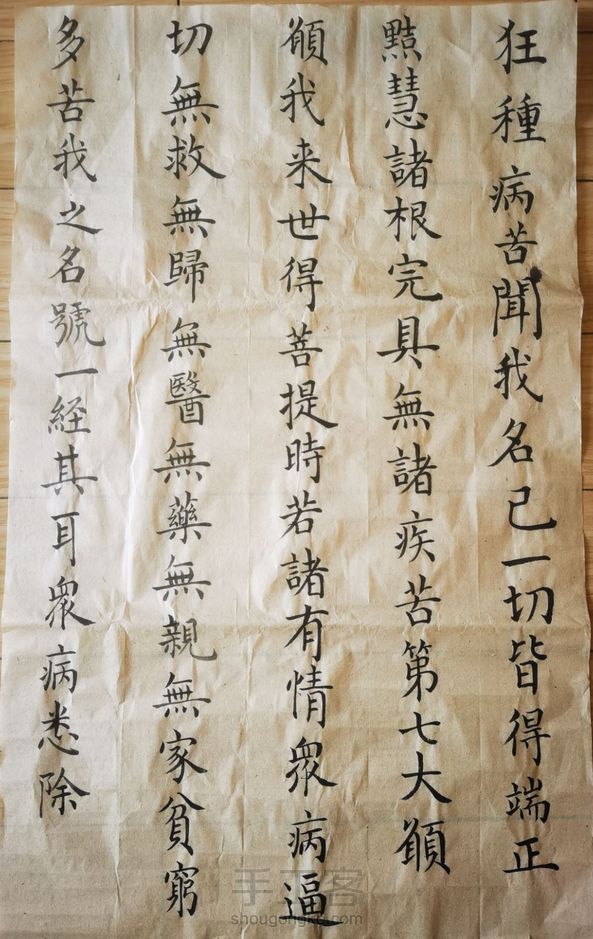 狂種病苦聞我名已一切皆得端正
黠慧諸根完具無諸疾苦第七大願
願我来世得菩提時若諸有情衆病逼
切無救無歸無醫無藥無親無家貧窮
多苦我之名號一経其耳衆病悉除
手工客
shougongke.com